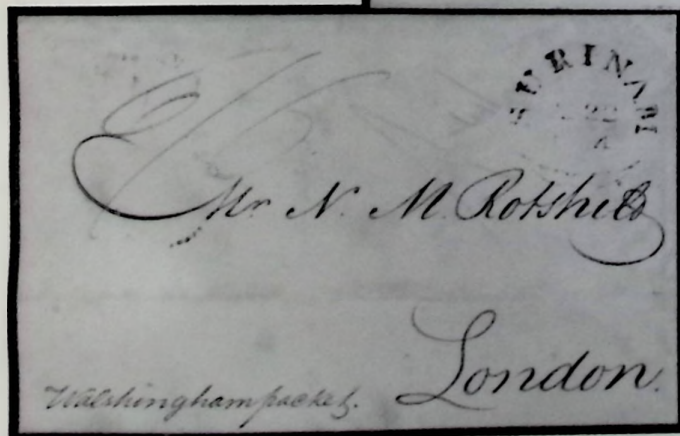 SURINAM
Mr N. M. Rotshild
London.
Walshingham packet.